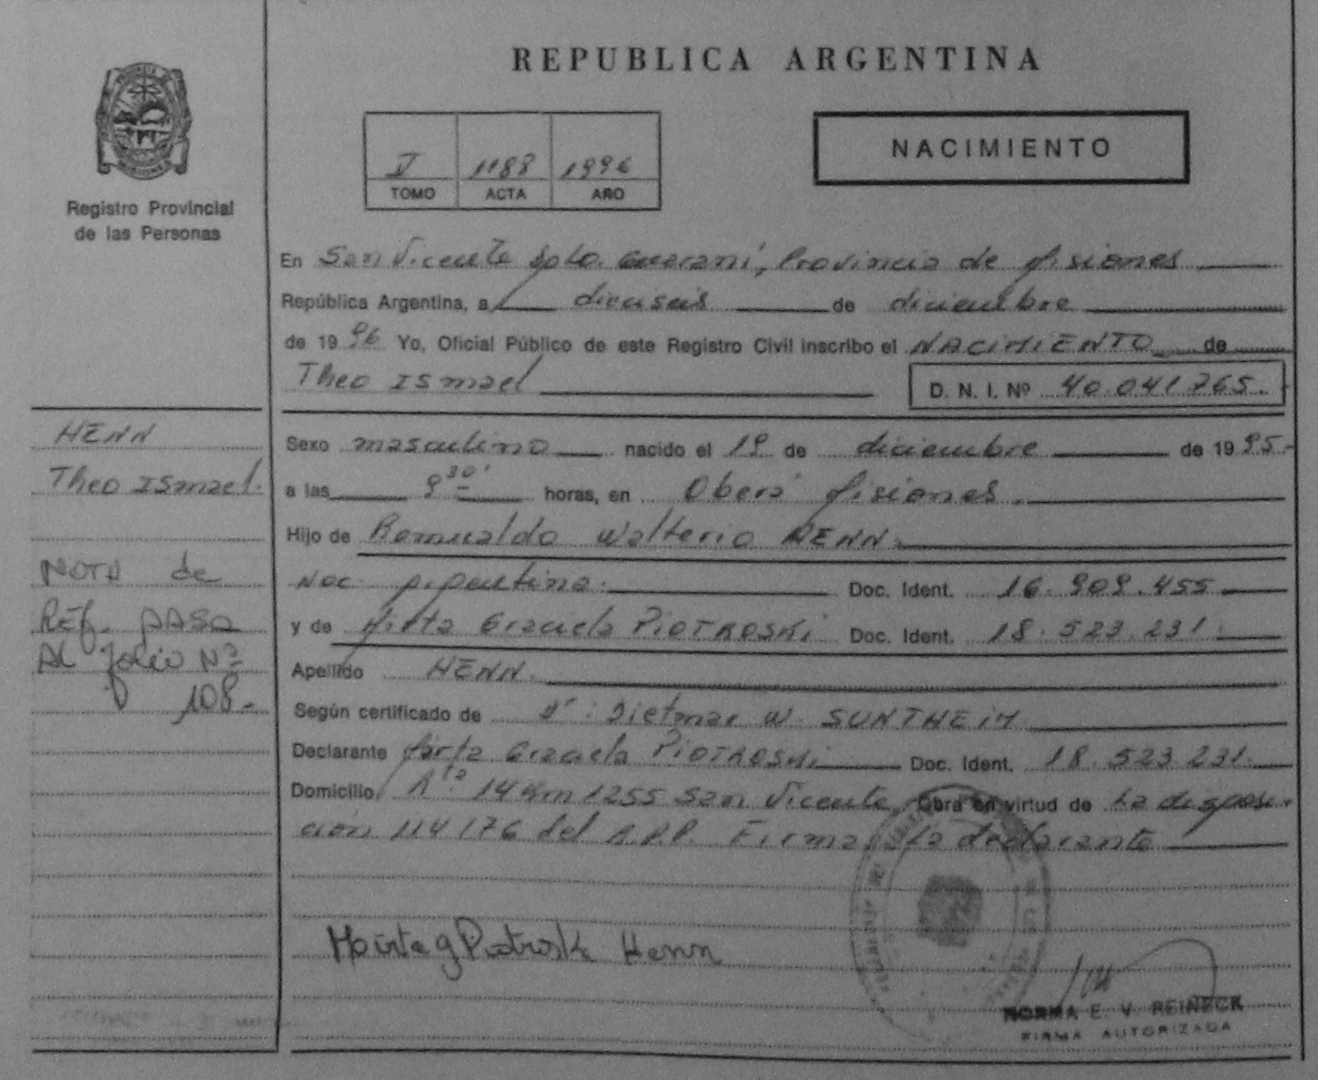 REPUBLICA ARGENTINA
NACIMIENTO
V 1188 1996
TOMO ACTA AÑO
Registro Provincial
de las Personas
En San Vicente Dpto. Guaraní, Provincia de Misiones
República Argentina, a dieciseis de diciembre
de 1996 Yo, Oficial Público de este Registro Civil inscribo el NACIMIENTO de
Theo Ismael D. N. I. Nº 40.041.765.-
HENN
Theo Ismael.
Sexo masculino nacido el 19 de diciembre de 1995.-
a las 9 30' horas, en Oberá Misiones.
Hijo de Romualdo Walterio HENN.
Nac. Argentina. Doc. Ident. 16.909.455
y de Mirta Graciela PIOTROSKI Doc. Ident. 18.523.231.
Apellido HENN.
Según certificado de Dr: Dietmar W. SUNTHEIM
Declarante Mirta Graciela PIOTROSKI Doc. Ident. 18.523.231.
Domicilio Rta 14 Km 1255 San Vicente, Obra en virtud de La disposi-
ción 114/76 del R.P.P. Firma La declarante
NOTA de
REf. PASA
AL folio Nº
108.-
Mirta g Piotroski Henn
NORMA E. V. REINECK
FIRMA AUTORIZADA